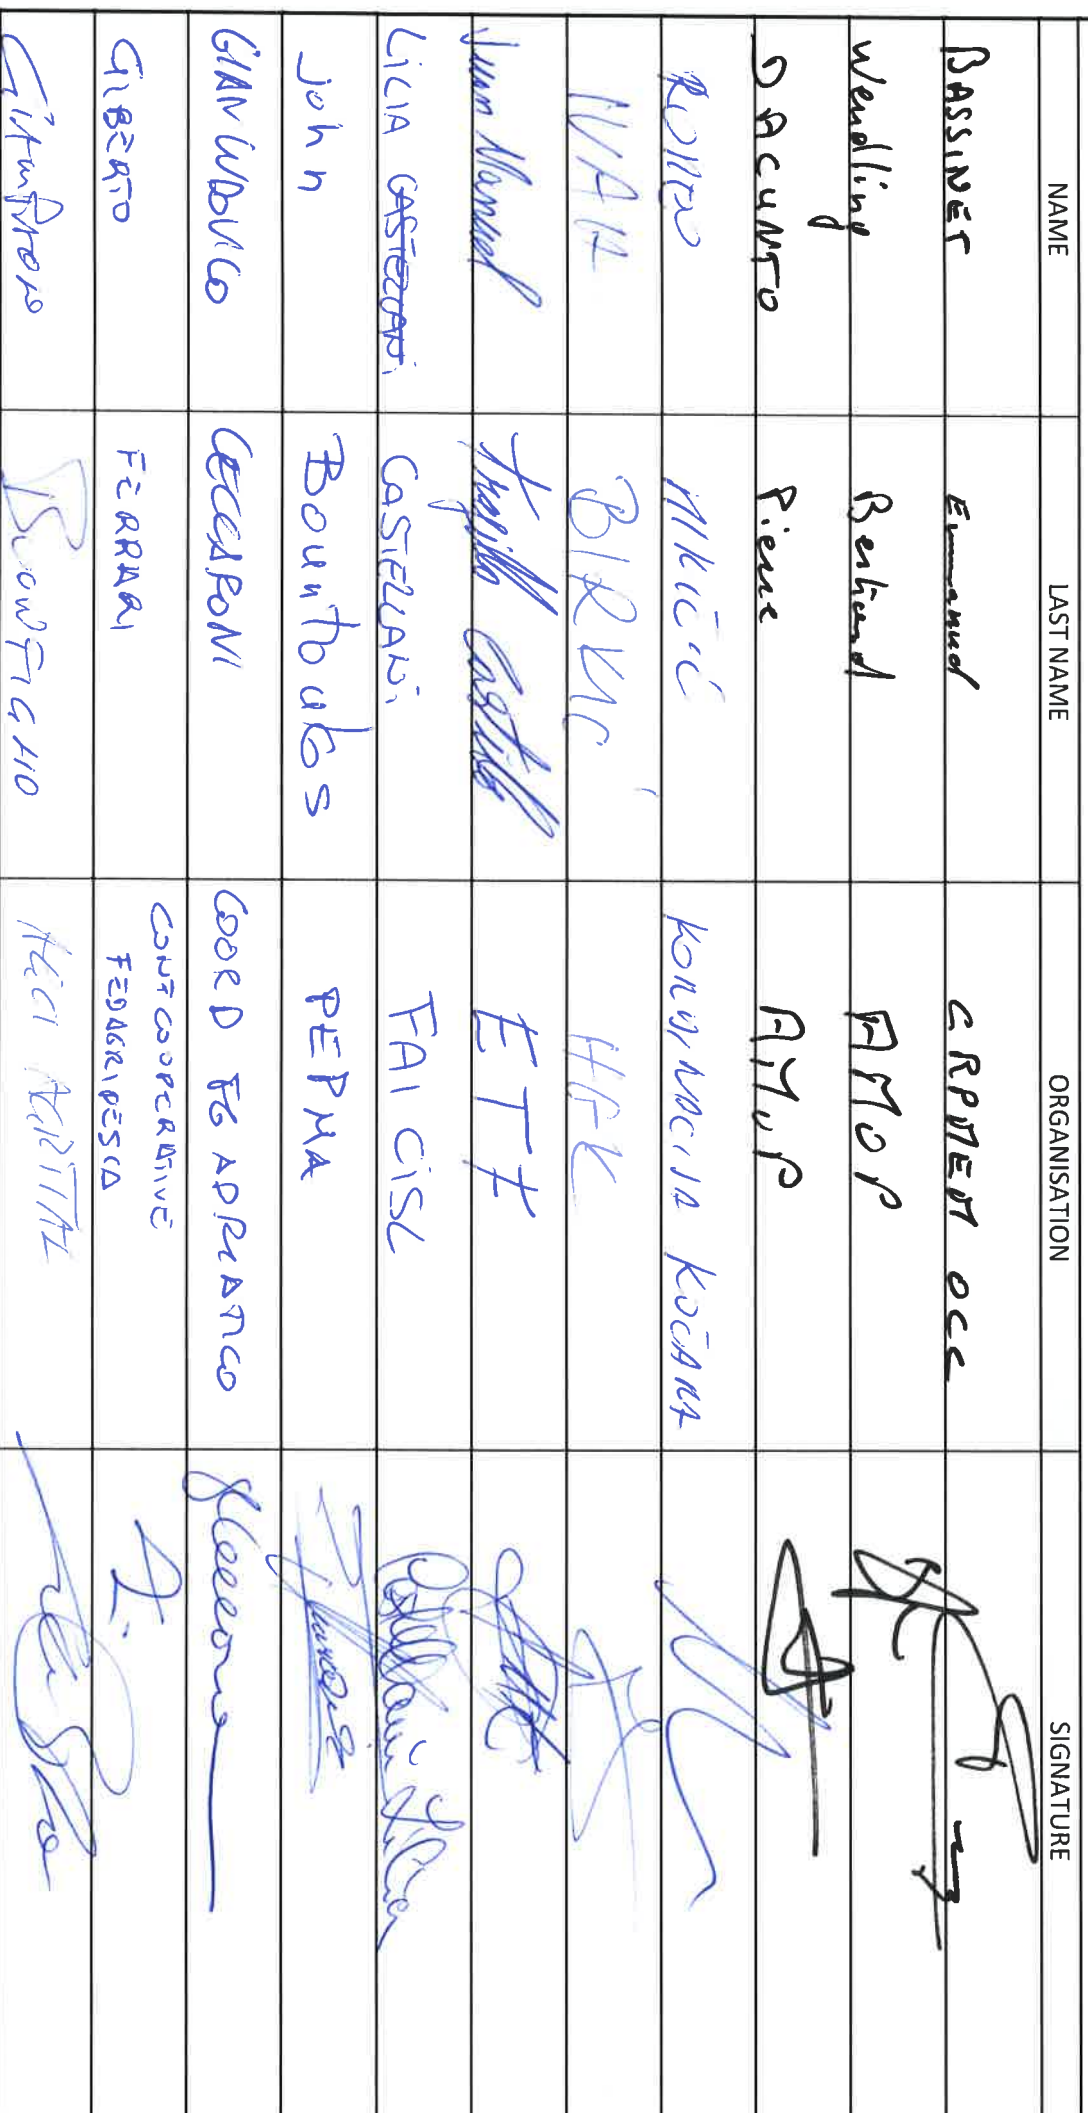 NAME LAST NAME ORGANISATION SIGNATURE
BASSINET Emmanuel CRPMEM OCC
Wendling Bertrand AMOP
DACUNTO Pierre AMOP
ROMEO MIKIČIĆ KOORDINACIJA KOČARA
IVAN BIRKIĆ HGK
Juan Manuel Trujillo Castillo ETF
LiCIA CASTELLANi CASTELLANi FAI CiSL
John Bountoukos PEPMA
GIAN LUDOVICO CECCARONI COORD FG ADRIATICO
GILBERTO FERRARI CONFCOOPERATIVE
FEDAGRIPESCA
GIAMPAOLO BUONFIGLIO AGCI AGRITAL